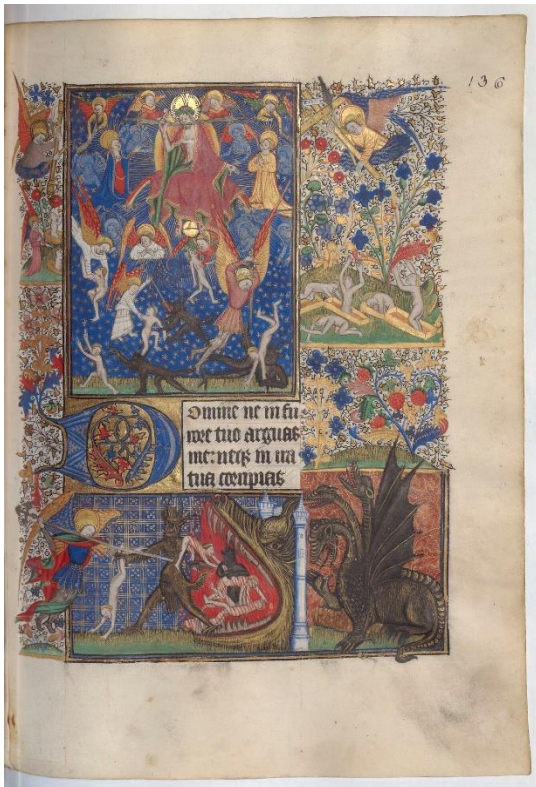 136
Domine ne in fu
rore tuo arguas
me: neqꝫ in ira
tua corripias